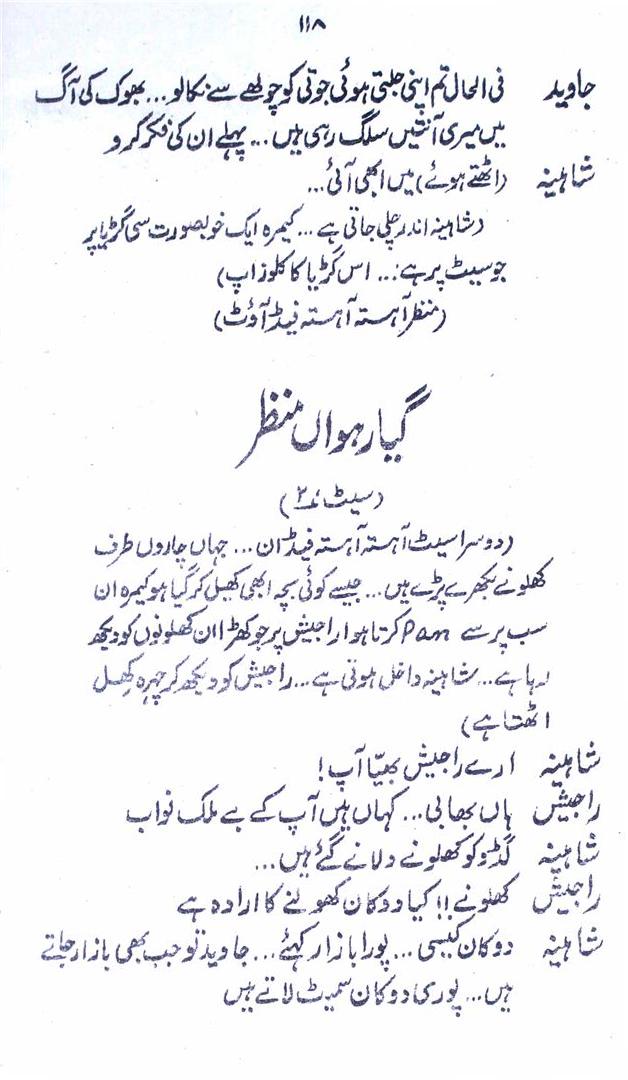 ۱۱۸
جاوید فی الحال تم اپنی جلتی ہوئی جوتی کو چولھے سے نکالو... بھوک کی آگ
میں میری آنتیں سلگ رہی ہیں... پہلے ان کی فکر کرو
شاہینہ (اٹھتے ہوئے) میں ابھی آئی...
(شاہینہ اندر چلی جاتی ہے... کیمرہ ایک خوبصورت سی گڑیا پر
جو سیٹ پر ہے:... اس گڑیا کا کلوز اپ)
(منظر آہستہ آہستہ فیڈ آؤٹ)
گیارہواں منظر
(سیٹ نمبر ۲)
(دوسرا سیٹ آہستہ آہستہ فیڈ ان... جہاں چاروں طرف
کھلونے بکھرے پڑے ہیں... جیسے کوئی بچہ ابھی کھیل کر گیا ہو کیمرہ ان
سب پر سے Pam کرتا ہوا راجیش پر جو کھڑا ان کھلونوں کو دیکھ
رہا ہے... شاہینہ داخل ہوتی ہے... راجیش کو دیکھ کر چہرہ کھل
اٹھتا ہے)
شاہینہ ارے راجیش بھیّا آپ!
راجیش ہاں بھابی... کہاں ہیں آپ کے بے ملک نواب
شاہینہ گڈو کو کھلونے دلانے گئے ہیں...
راجیش کھلونے!! کیا دوکان کھولنے کا ارادہ ہے
شاہینہ دوکان کیسی... پورا بازار کہئے... جاوید تو جب بھی بازار جاتے
ہیں... پوری دوکان سمیٹ لاتے ہیں